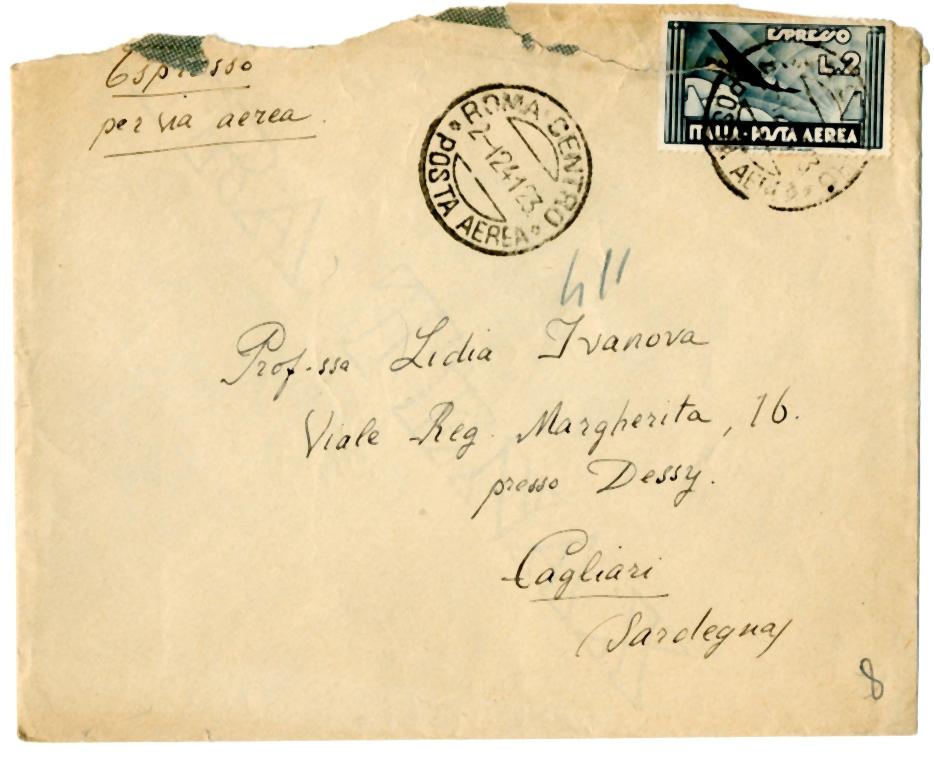 Espresso
per via aerea.
ROMA CENTRO
2-1241 23
POSTA AEREA
ESPRESSO
L.2
ITALIA-POSTA AEREA
411
Prof.ssa Lidia Ivanova
Viale Reg. Margherita, 16.
presso Dessy.
Cagliari
(Sardegna)
8